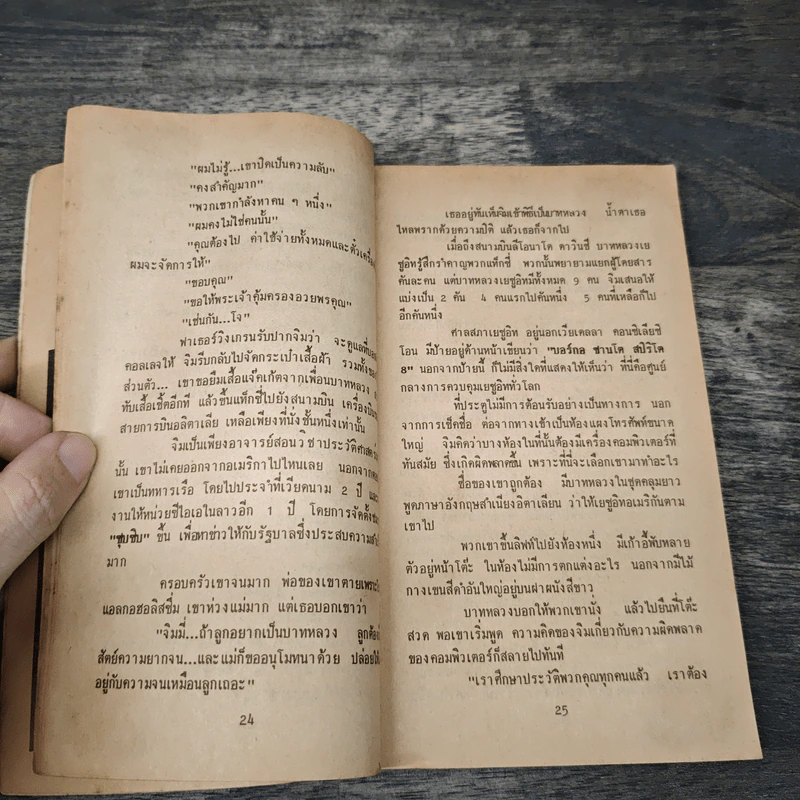 "ผมไม่รู้...เขาปิดเป็นความลับ"
"คงสำคัญมาก"
"พวกเขากำลังหาคน ๆ หนึ่ง"
"ผมคงไม่ใช่คนนั้น"
"คุณต้องไป ค่าใช้จ่ายทั้งหมดและตั๋วเครื่อง
ผมจะจัดการให้"
"ขอบคุณ"
"ขอให้พระเจ้าคุ้มครองอวยพรคุณ"
"เช่นกัน...โจ"
ฟาเธอร์วิงเกรนรับปากจิมว่า จะดูแลที่
คอลเลจให้ จิมรีบกลับไปจัดกระเป๋าเสื้อผ้า รวมทั้งของ
ส่วนตัว... เขาขอยืมเสื้อแจ๊คเก้ตจากเพื่อนบาทหลวง
ทับเสื้อเชิ้ตอีกที แล้วขึ้นแท็กซี่ไปยังสนามบิน เครื่องบิน
สายการบินอลิตาเลีย เหลือเพียงที่นั่งชั้นหนึ่งเท่านั้น
จิมเป็นเพียงอาจารย์สอนวิชาประวัติศาสตร์
นั้น เขาไม่เคยออกจากอเมริกาไปไหนเลย นอกจาก
เขาเป็นทหารเรือ โดยไปประจำที่เวียดนาม 2 ปี และ
งานให้หน่วยซีไอเอในลาวอีก 1 ปี โดยการจัดตั้ง
"ซุบซิบ" ขึ้น เพื่อหาข่าวให้กับรัฐบาลซึ่งประสบความสำเร็จ
มาก
ครอบครัวเขาจนมาก พ่อของเขาตายเพราะ
แอลกอฮอลิสซึ่ม เขาห่วงแม่มาก แต่เธอบอกเขาว่า
"จิมมี่...ถ้าลูกอยากเป็นบาทหลวง ลูกต้อง
สัตย์ความยากจน...และแม่ก็ขออนุโมทนาด้วย ปล่อยให้
อยู่กับความจนเหมือนลูกเถอะ"
24
เธออยู่ทันเห็นจิมเข้าพิธีเป็นบาทหลวง น้ำตาเธอ
ไหลพรากด้วยความปิติ แล้วเธอก็จากไป
เมื่อถึงสนามบินลีโอนาโด ดาวินซี่ บาทหลวงเย
ซูอิทรู้สึกรำคาญพวกแท็กซี่ พวกนั้นพยายามแยกผู้โดยสาร
คันละคน แต่บาทหลวงเยซูอิทมีทั้งหมด 9 คน จิมเสนอให้
แบ่งเป็น 2 คัน 4 คนแรกไปคันหนึ่ง 5 คนที่เหลือก็ไป
อีกคันหนึ่ง
ศาลสภาเยซูอิท อยู่นอกเวียเดลลา คอนซิเลียซิ
โอน มีป้ายอยู่ด้านหน้าเขียนว่า "บอร์กอ ซานโต สปิริโต
8" นอกจากป้ายนี้ ก็ไม่มีสิ่งใดที่แสดงให้เห็นว่า ที่นี่คือศูนย์
กลางการควบคุมเยซูอิททั่วโลก
ที่ประตูไม่มีการต้อนรับอย่างเป็นทางการ นอก
จากการเช็คชื่อ ต่อจากทางเข้าเป็นห้องแผงโทรศัพท์ขนาด
ใหญ่ จิมคิดว่าบางห้องในที่นั้นต้องมีเครื่องคอมพิวเตอร์ที่
ทันสมัย ซึ่งเกิดผิดพลาดขึ้น เพราะที่นี่จะเลือกเขามาทำอะไร
ชื่อของเขาถูกต้อง มีบาทหลวงในชุดคลุมยาว
พูดภาษาอังกฤษสำเนียงอิตาเลียน ว่าให้เยซูอิทอเมริกันตาม
เขาไป
พวกเขาขึ้นลิฟท์ไปยังห้องหนึ่ง มีเก้าอี้พับหลาย
ตัวอยู่หน้าโต๊ะ ในห้องไม่มีการตกแต่งอะไร นอกจากมีไม้
กางเขนสีดำอันใหญ่อยู่บนฝาผนังสีขาว
บาทหลวงบอกให้พวกเขานั่ง แล้วไปยืนที่โต๊ะ
สวด พอเขาเริ่มพูด ความคิดของจิมเกี่ยวกับความผิดพลาด
ของคอมพิวเตอร์ก็สลายไปทันที
"เราศึกษาประวัติพวกคุณทุกคนแล้ว เราต้อง
25